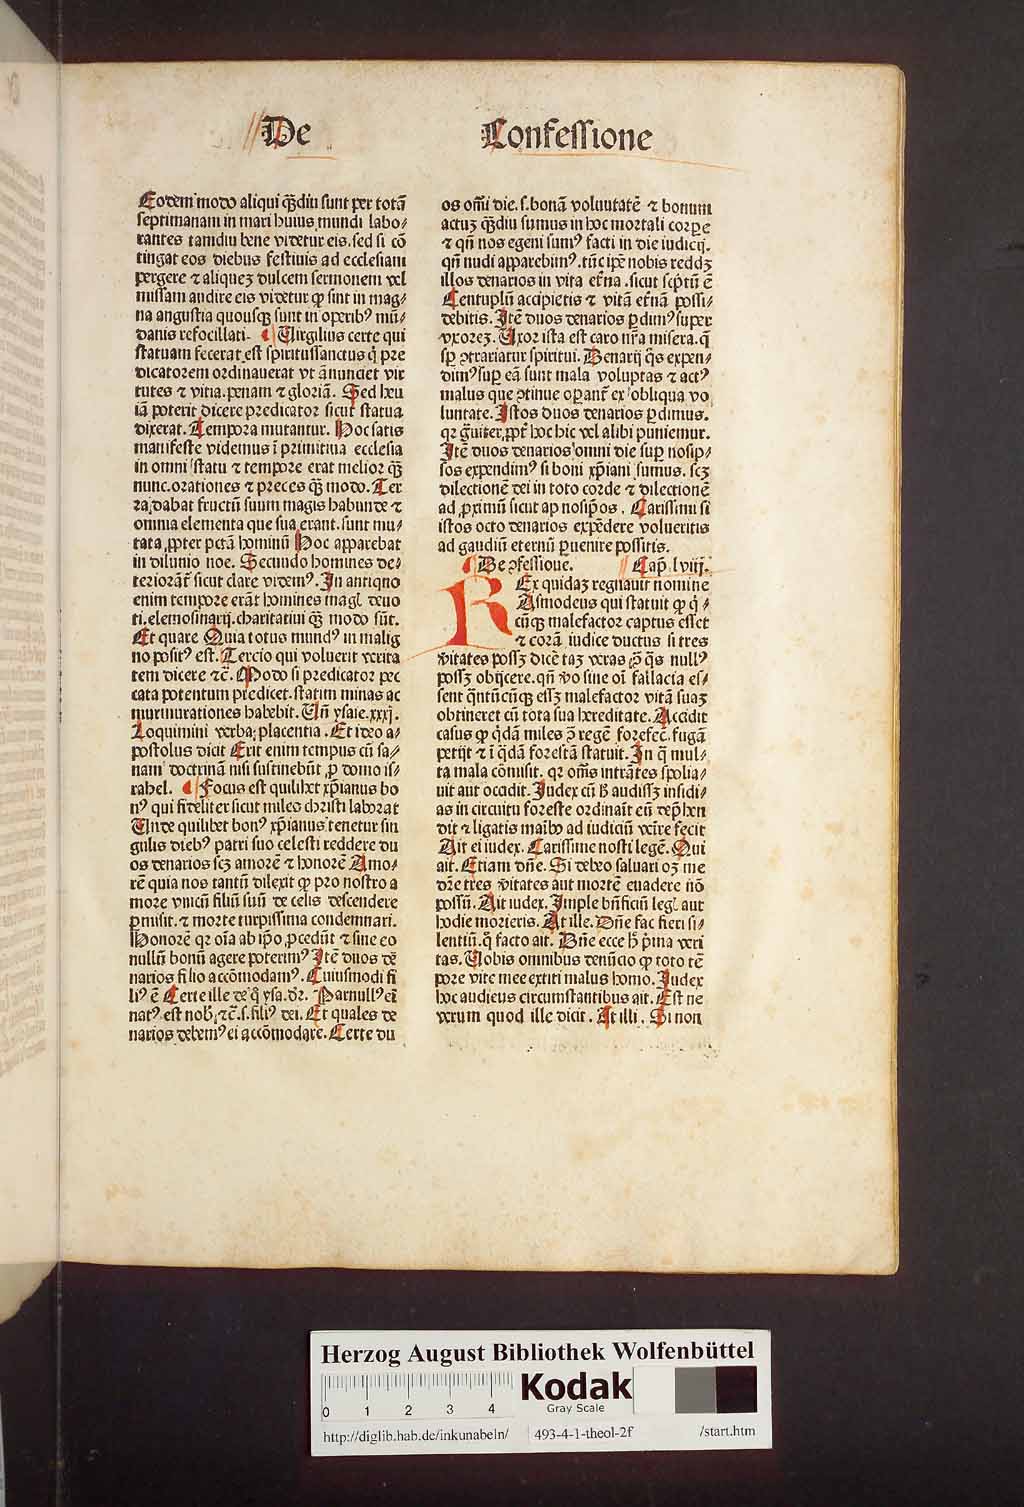 De Confessione
Eodem modo aliqui qƺdiu sunt per totā
septimanam in mari huius mundi labo-
rantes tamdiu bene videtur eis. sed si cō
tingat eos diebus festiuis ad ecclesiam
pergere ⁊ aliqueꝫ dulcem sermonem vel
missam audire eis videtur ꝙ sint in mag-
na angustia quousqꝫ sunt in operibꝰ mū-
danis refocillati. Uirgilius certe qui
statuam fecerat est spiritussanctus q̇ pre
dicatorem ordinauerat vt ānunciet vir
tutes ⁊ vitia. penam ⁊ gloriā. Sed heu
iā poterit dicere predicator sicut statua
dixerat. Tempora mutantur. Hoc satis
manifeste videmus ī primitiua ecclesia
in omni statu ⁊ tempore erat melior qꝫ
nunc. orationes ⁊ preces qꝫ modo. Ter
ra dabat fructū suum magis habunde ⁊
omnia elementa que sua erant. sunt mu-
tata ꝓpter pctā hominū Hoc apparebat
in diluuio noe. Secundo homines de-
teriorāt̃ sicut clare videmꝰ. In antiquo
enim tempore erāt homines magꝭ deuo
ti. elemosinarij. charitatiui qꝫ modo sūt.
Et quare Quia totus mundꝰ in malig
no positꝰ est. Tercio qui voluerit verita
tem dicere ⁊c̄. Modo si predicator pec
cata potentum predicet. statim minas ac
murmurationes habebit. Uñ ysaie. xxxj.
Loquimini verba placentia. Et ideo a-
postolus dicit Erit enim tempus cū sa-
nam doctrinā nisi sustinebūt ꝓ domo is-
rahel. Focus est quilibet xp̄ianus bo
nꝰ qui fideliter sicut miles christi laborat
Unde quilibet bonꝰ xp̄ianus tenetur sin
gulis diebꝰ patri suo celesti reddere du
os denarios scꝫ amorē ⁊ honorē Amo-
rē quia nos tantū dilexit ꝙ pro nostro a
more vnicū filiū suū de celis descendere
ꝑmisit. ⁊ morte turpissima condemnari.
Honorē qꝛ oīa ab ip̄o ꝓcedūt ⁊ sine eo
nullū bonū agere poterimꝰ Itē duos de
narios filio accōmodamꝰ. Cuiusmodi fi
liꝰ ē Certe ille de q̊ ysa. dr̄. Paruulꝰ eī
natꝰ est nob̄. ⁊c̄. s. filiꝰ dei. Et quales de
narios debemꝰ ei accōmodare. Certe du
os om̄i die. s. bonā voluutatē ⁊ bonum
actuꝫ qꝫdiu sumus in hoc mortali corpe
⁊ qñ nos egeni sumꝰ facti in die iudicij.
qñ nudi apparebimꝰ. tūc ip̄e nobis reddꝫ
illos denarios in vita et̄na. sicut scptū ē
Centuplū accipietis ⁊ vitā et̄nā possi-
debitis. Itē duos denarios ꝑdimꝰ super
vxoreꝫ. Uxor ista est caro nr̄a misera. q̄
sp̄ ꝯtrariatur spiritui. Denarij q̊s expen-
dimꝰ suꝑ eā sunt mala voluptas ⁊ actꝰ
malus que ꝯtinue oꝑant̃ ex obliqua vo
luntate. Istos duos denarios ꝑdimus.
qꝛ g̊uiter ꝓpt̃ hoc hic vel alibi puniemur.
Itē duos denarios omni die suꝑ nosip-
sos expendimꝰ si boni xp̄iani sumus. scꝫ
dilectionē dei in toto corde ⁊ dilectionē
ad ꝓximū sicut ap nosip̄os. Carissimi si
istos octo denarios expēdere volueritis
ad gaudiū eternū ꝑuenire possitis.
De ꝯfessioue. Cap. lviij.
Rex quidaꝫ regnauit nomine
Asmodeus qui statuit ꝙ q̇-
cūqꝫ malefactor captus esset
⁊ corā iudice ductus si tres
v̄itates possꝫ dicē taꝫ veras ꝙ q̊s nullꝰ
possꝫ obijcere. qñ v̊o sine oī fallacia es-
sent q̄ntūcūqꝫ essꝫ malefactor vitā suaꝫ
obtineret cū tota sua hereditate. Accidit
casus ꝙ q̇dā miles ꝯ̄ regē forefec̄. fugā
petijt ⁊ ī q̇dā forestā statuit. In q̄ mul-
ta mala cōmisit. qꝛ om̄s intrātes spolia-
uit aut occidit. Judex cū h̄ audissꝫ insidi-
as in circuitu foreste ordinaīt eū dep̄hen
dit ⁊ ligatis maībꝰ ad iudiciū veīre fecit
Ait ei iudex. Carissime nosti legē. Qui
ait. Etiam dn̄e. Si debeo saluari oꝫ me
dr̄e tres v̄itates aut mortē euadere nō
possū. Ait iudex. Imple bn̄ficiū legꝭ aut
hodie morieris. At ille. Dn̄e fac fieri si-
lentiū. q̊ facto ait. Dn̄e ecce h̄ p̄ma veri
tas. Uobis omnibus denūcio ꝙ toto tē
pore vite mee extiti malus homo. Judex
hoc audieus circumstantibus ait. Est ne
verum quod ille dicit. At illi. Si non
Herzog August Bibliothek Wolfenbüttel
0 1 2 3 4 Kodak
Gray Scale
http://diglib.hab.de/inkunabeln/ 493-4-1-theol-2f /start.htm